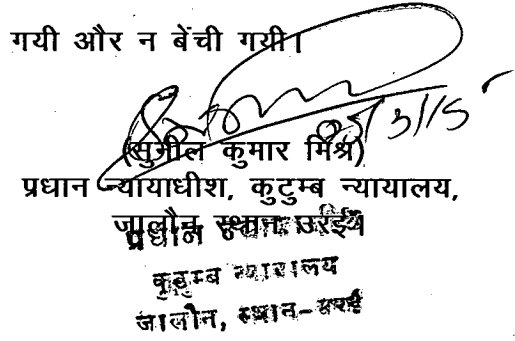 गयी और न बेंची गयी।
05/3/15
(सुनील कुमार मिश्र)
प्रधान न्यायाधीश, कुटुम्ब न्यायालय,
जालौन स्थान उरई।
प्रधान
कुटुम्ब न्यायालय
जालौन, स्थान-उरई